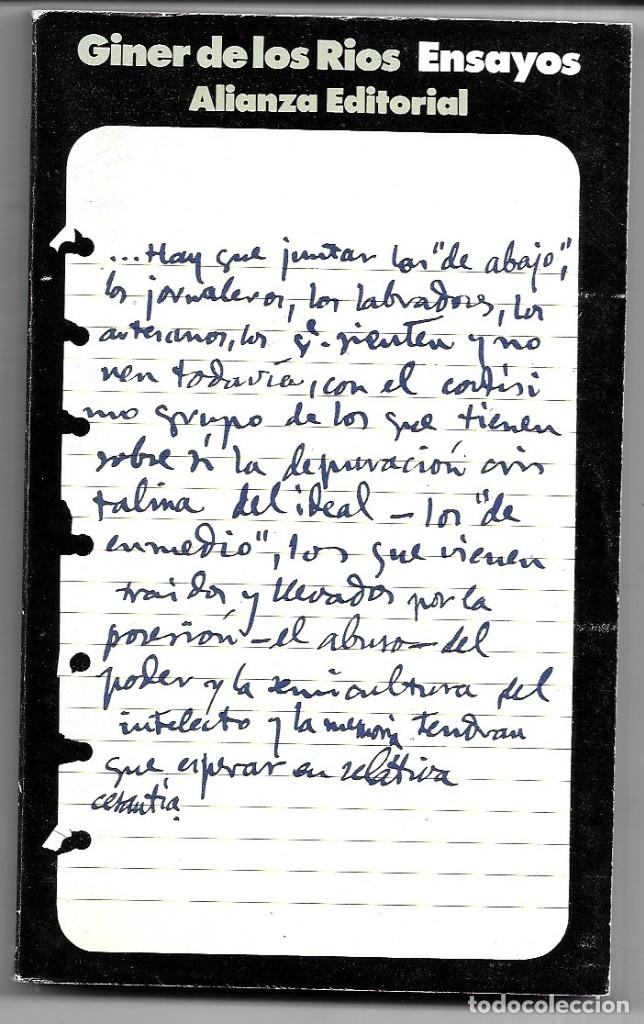 Giner de los Rios Ensayos
Alianza Editorial
...Hay que juntar los "de abajo",
los jornaleros, los labradores, los
artesanos, los qe. sienten y no
ven todavía, con el cortísi
mo grupo de los que tienen
sobre sí la depuración cris
talina del ideal - los "de
enmedio", los que vienen
traidos y llevados por la
posesión - el abuso - del
poder y la semicultura del
intelecto y la memoria, tendran
que esperar en relativa
cesantía.
todocoleccion